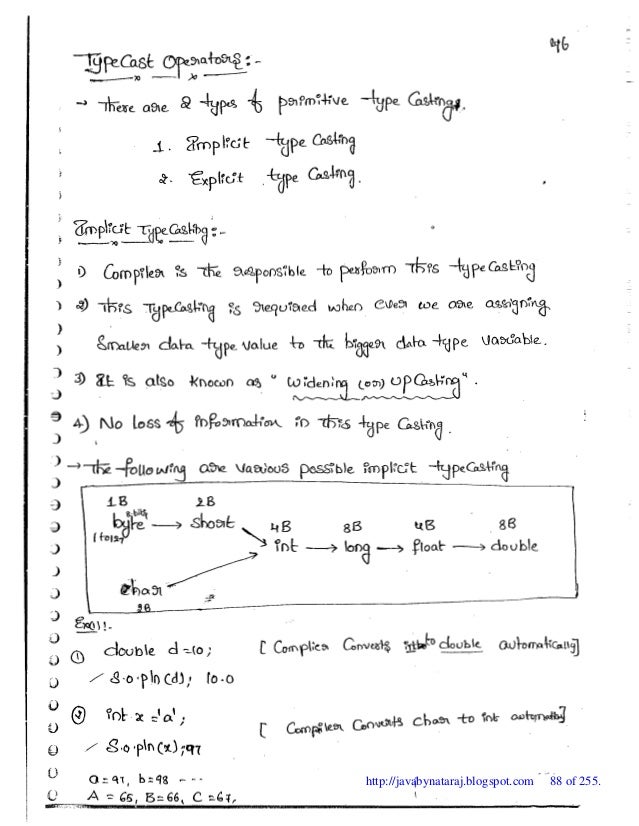 46
TypeCast Operators :-
→ There are 2 types of primitive type Castings.
1. Implicit type Casting
2. Explicit type Casting.
Implicit TypeCasting :-
1) Compiler is the responsible to perform this typeCasting
2) This TypeCasting is required when ever we are assigning
Smaller data type value to the bigger data type variable.
3) It is also known as " Widening (or) UpCasting".
4) No Loss of information in this type Casting.
→ The following are various possible implicit typeCasting
1B 2B 4B 8B 4B 8B
8 bits
byte → short → int → long → float → double
char
2B
① double d=10; [ Complier Converts int to double automatically]
S.o.pln(d); 10.0
② int x ='a'; [ Compiler Converts char to int automatically]
S.o.pln(x); 97
a=97, b=98 - - -
A = 65, B=66, C=67,
http://javabynataraj.blogspot.com 88 of 255.